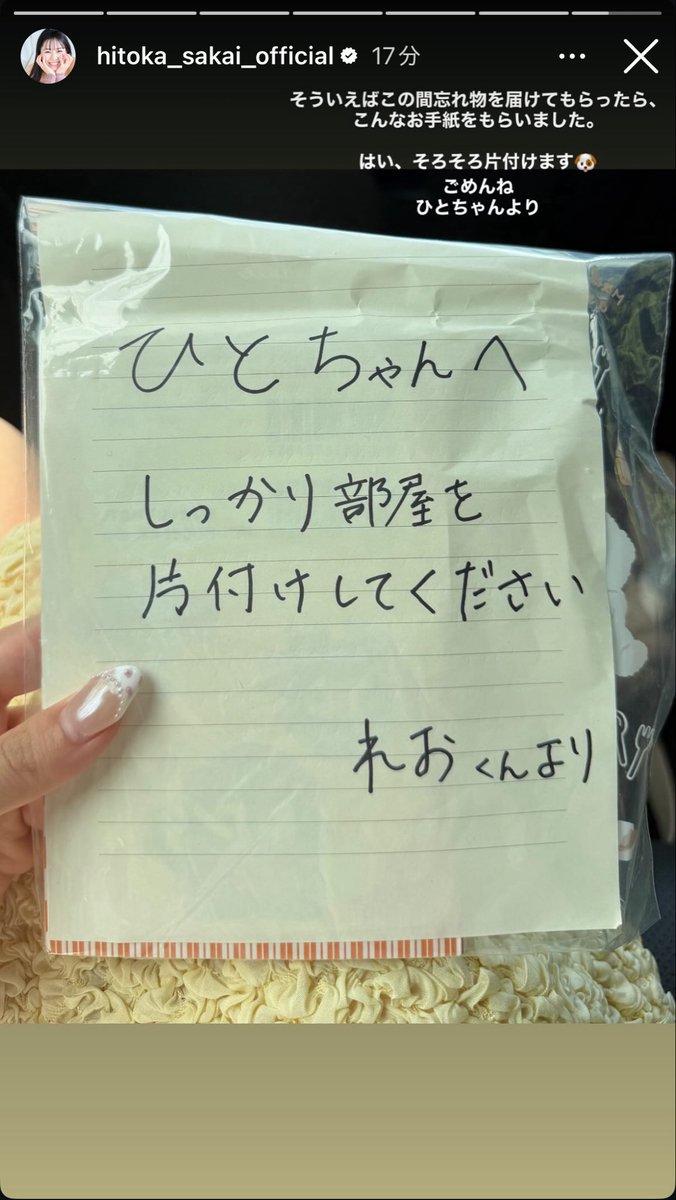 hitoka_sakai_official 17分
そういえばこの間忘れ物を届けてもらったら、
こんなお手紙をもらいました。
はい、そろそろ片付けます🐶
ごめんね
ひとちゃんより
ひとちゃんへ
しっかり部屋を
片付けしてください
れおくんより